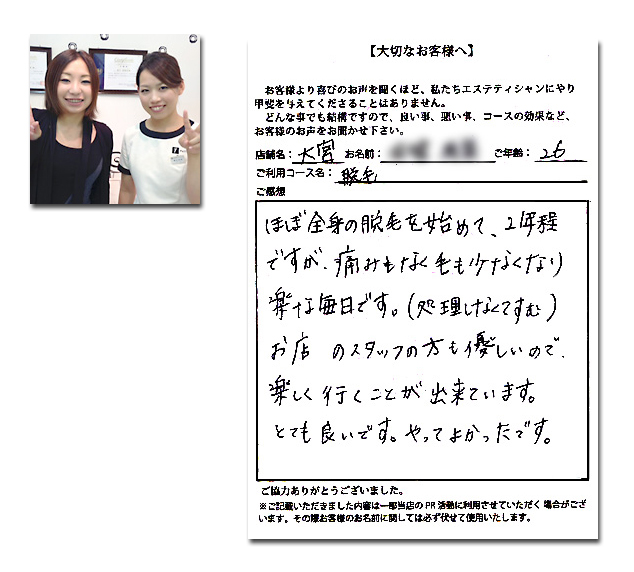 【大切なお客様へ】
お客様より喜びのお声を聞くほど、私たちエステティシャンにやり
甲斐を与えてくださることはありません。
どんな事でも結構ですので、良い事、悪い事、コースの効果など、
お客様のお声をお聞かせ下さい。
店舗名: 大宮 お名前: ご年齢: 26
ご利用コース名: 脱毛
ご感想
ほぼ全身の脱毛を始めて、2年程
ですが、痛みもなく毛も少なくなり
楽な毎日です。(処理しなくてすむ)
お店 のスタッフの方も優しいので、
楽しく行くことが出来ています。
とても良いです。やってよかったです。
ご協力ありがとうございました。
※ご記載いただきました内容は一部当店のPR活動に利用させていただく場合がござ
います。その際お客様のお名前に関しては必ず伏せて使用いたします。